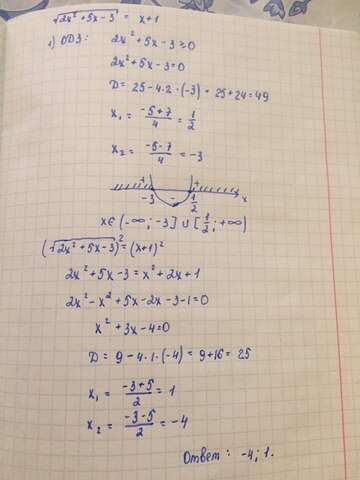 √(2x² + 5x - 3) = x + 1
1) ОДЗ: 2x² + 5x - 3 ≥ 0
2x² + 5x - 3 = 0
D = 25 - 4·2·(-3) = 25 + 24 = 49
x₁ = (-5 + 7)/4 = 1/2
x₂ = (-5 - 7)/4 = -3
+ - +
-3 1/2 x
x ∈ (-∞; -3] ∪ [1/2; +∞)
(√(2x² + 5x - 3))² = (x + 1)²
2x² + 5x - 3 = x² + 2x + 1
2x² - x² + 5x - 2x - 3 - 1 = 0
x² + 3x - 4 = 0
D = 9 - 4·1·(-4) = 9 + 16 = 25
x₁ = (-3 + 5)/2 = 1
x₂ = (-3 - 5)/2 = -4
Ответ: -4; 1.